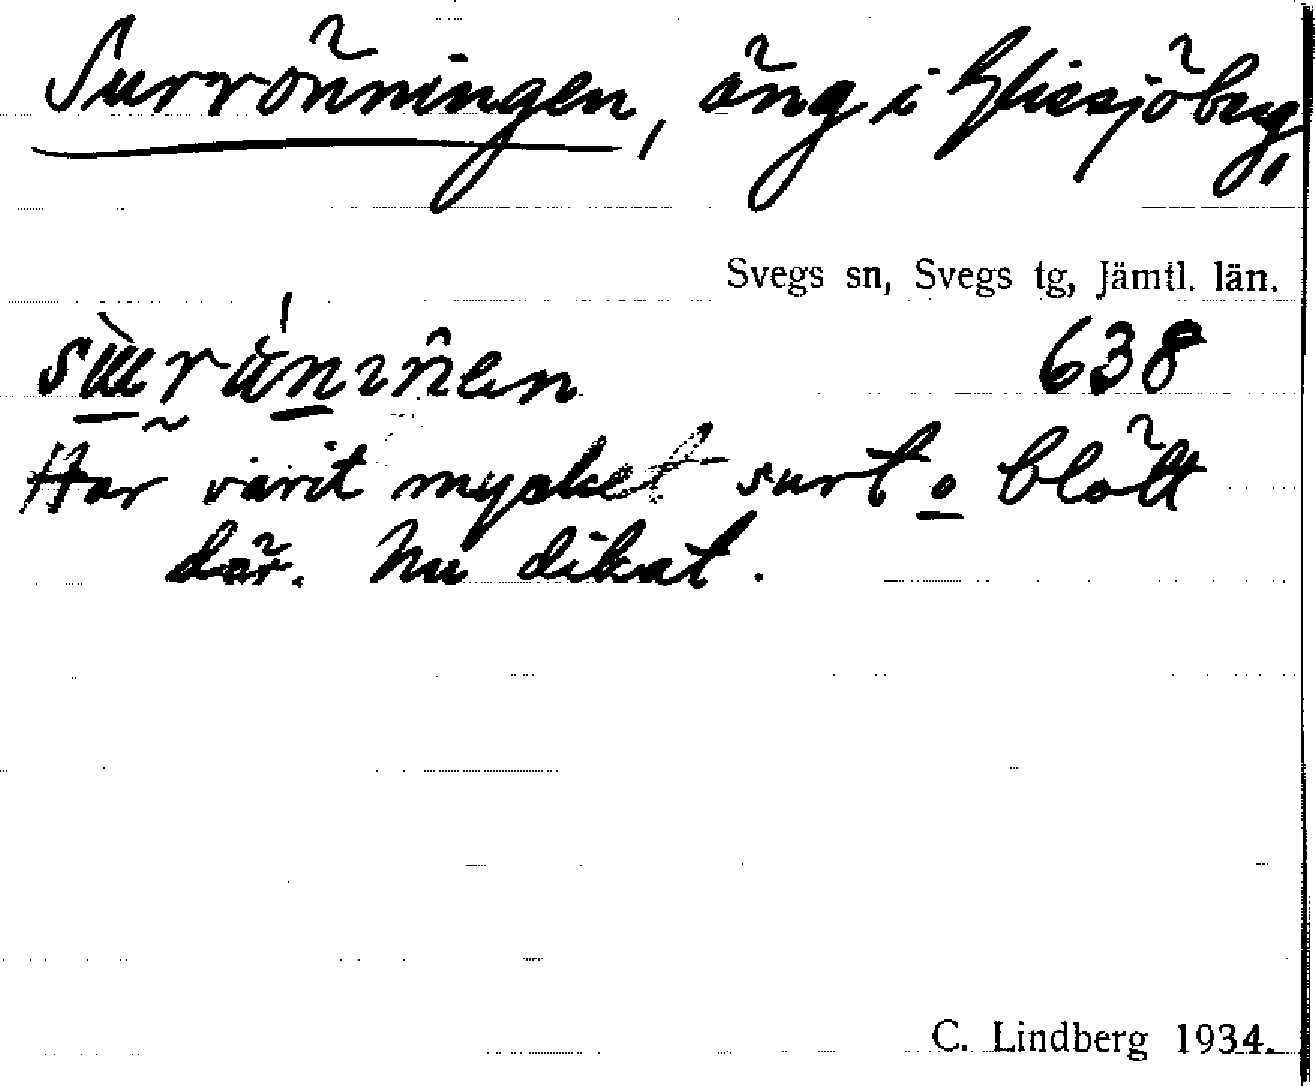 Surrönningen, äng i Glissjöberg,
Svegs sn, Svegs tg, Jämtl. län.
638
Har varit mycket surt o blött
där. Nu dikat.
C. Lindberg 1934.